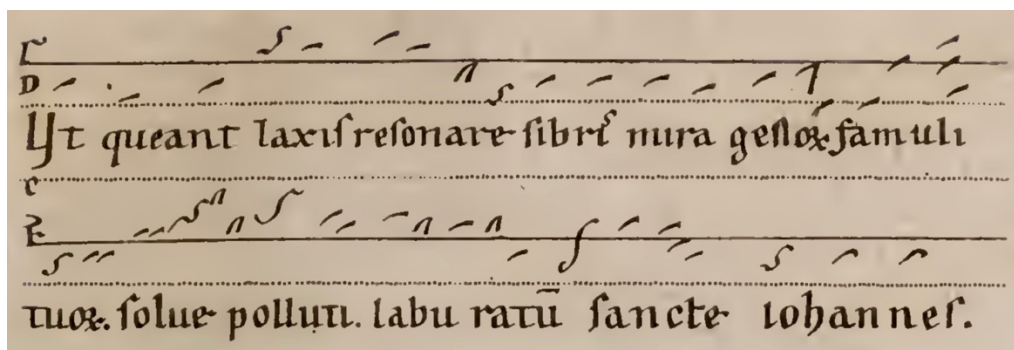 F
D
Ut queant laxiſ reſonare fibriſ mira geſtoꝝ famuli
C
F
tuoꝝ. ſolue polluti. labii ratū ſancte iohanneſ.